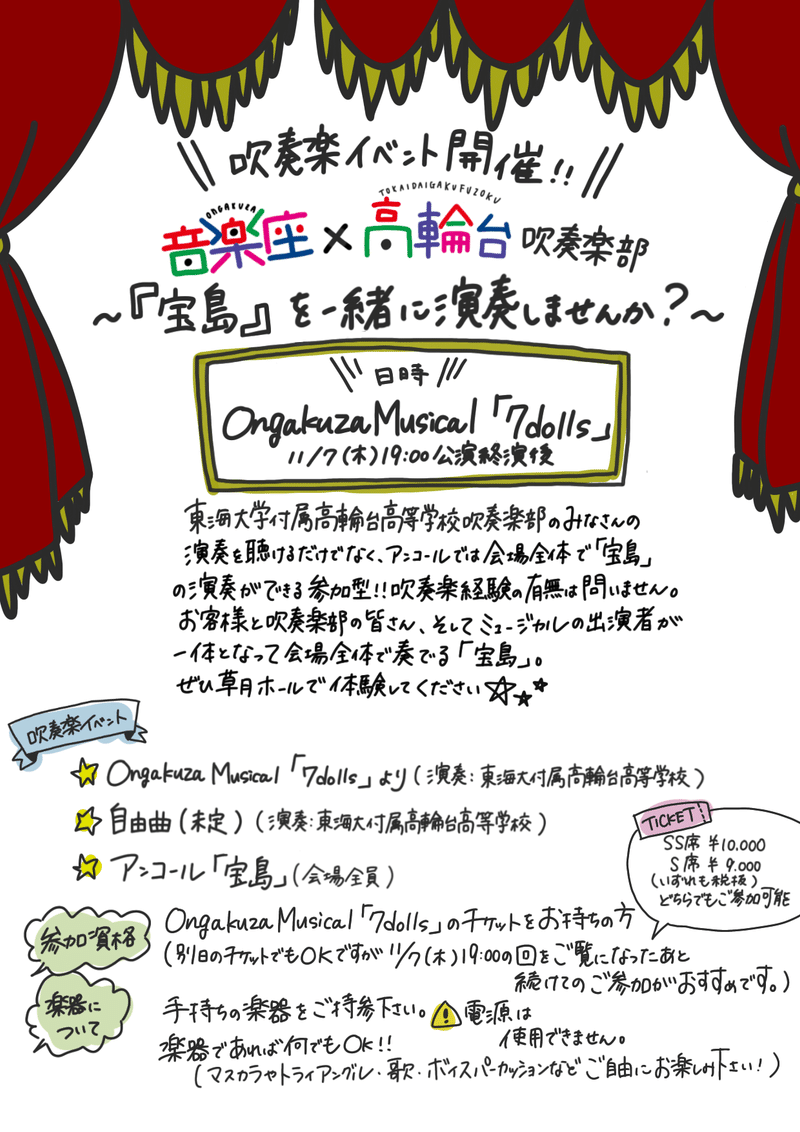 吹奏楽イベント開催!!
ONGAKUZA TOKAIDAIGAKUFUZOKU
音楽座×高輪台吹奏楽部
〜『宝島』を一緒に演奏しませんか?〜
日時
Ongakuza Musical「7dolls」
11/7(木)19:00公演終演後
東海大学付属高輪台高等学校吹奏楽部のみなさんの
演奏を聴けるだけでなく、アンコールでは会場全体で「宝島」
の演奏ができる参加型!!吹奏楽経験の有無は問いません。
お客様と吹奏楽部の皆さん、そしてミュージカルの出演者が
一体となって会場全体で奏でる「宝島」。
ぜひ草月ホールで体験してください☆
吹奏楽イベント
☆ Ongakuza Musical「7dolls」より(演奏:東海大付属高輪台高等学校)
☆ 自由曲(未定)(演奏:東海大付属高輪台高等学校)
☆ アンコール「宝島」(会場全員)
TICKET!
SS席 ¥10.000
S席 ¥ 9.000
(いずれも税抜)
どちらでもご参加可能
参加資格
Ongakuza Musical「7dolls」のチケットをお持ちの方
(別日のチケットでもOKですが 11/7(木)19:00の回をご覧になったあと
続けてのご参加がおすすめです。)
楽器に
ついて
手持ちの楽器をご持参下さい。⚠電源は
使用できません。
楽器であれば何でもOK!!
(マスカラやトライアングル・歌・ボイスパーカッションなどご自由にお楽しみ下さい!)